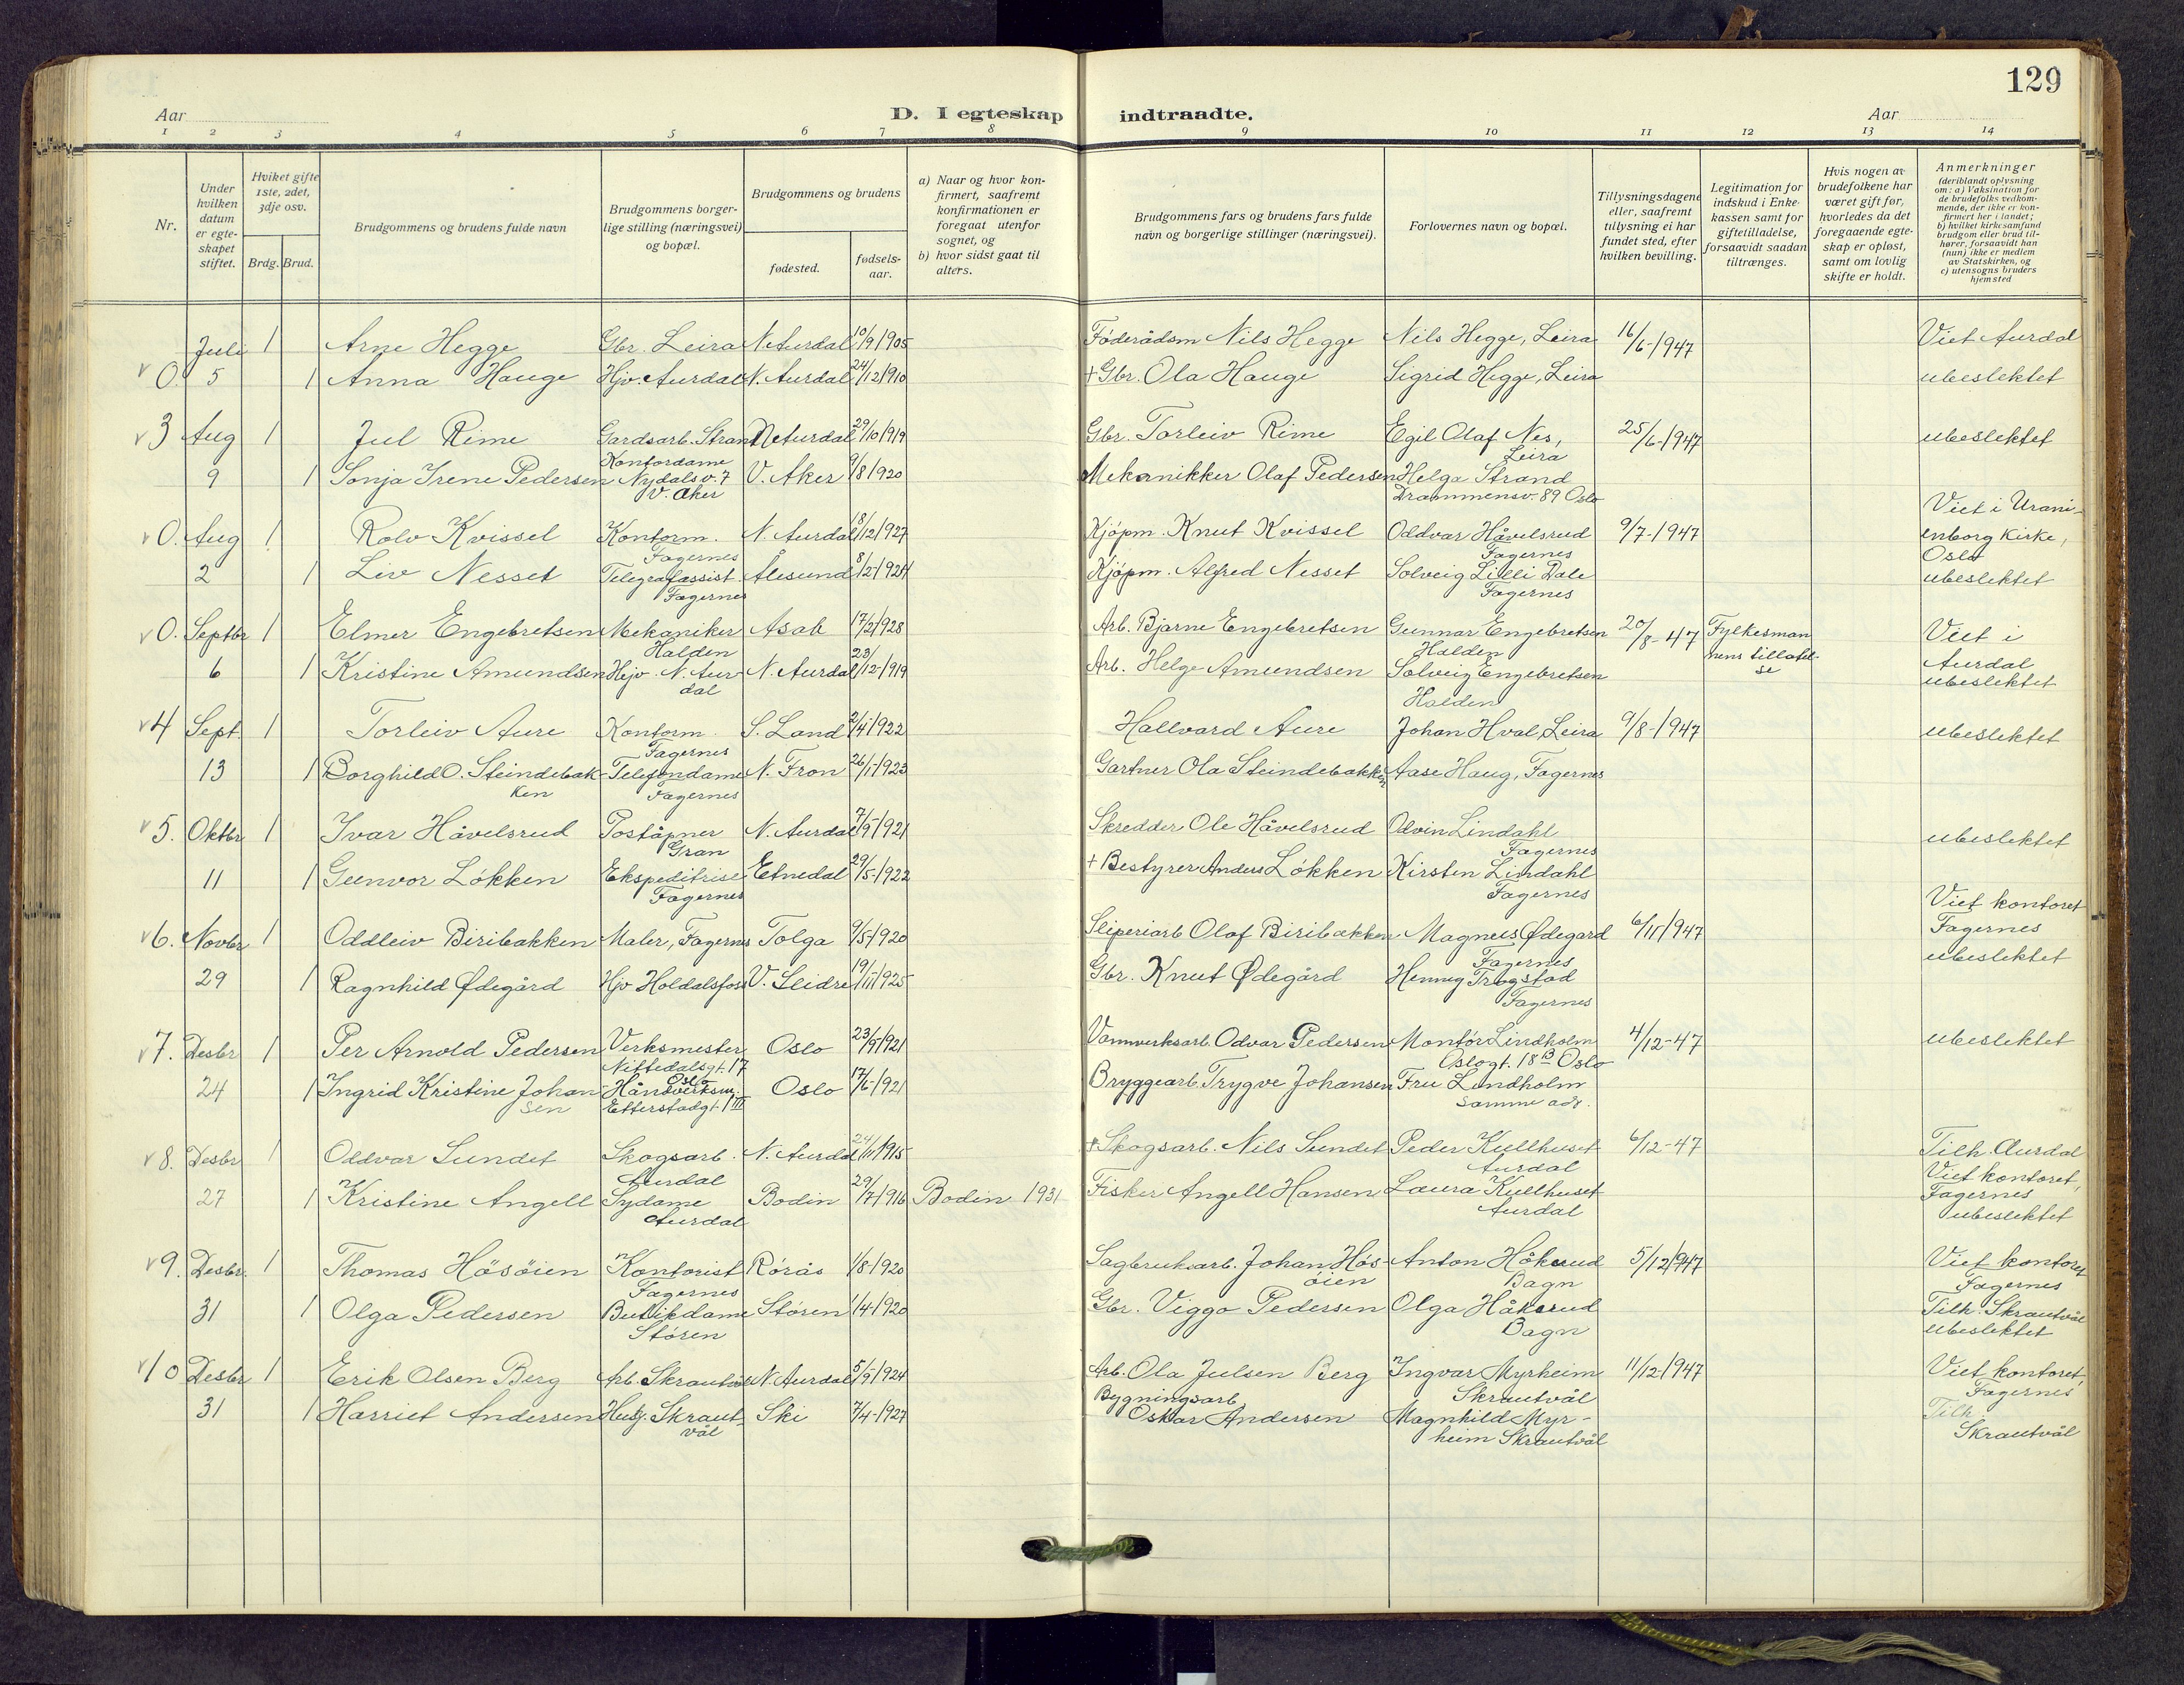 129
Aar
D. I egteskap indtraadte.
Aar
1 2 3 4 5 6 7 8 9 10 11 12 13 14
Nr.
Under hvilken datum er egteskapet stiftet.
Hviket gifte 1ste, 2det, 3dje osv.
Brdg. Brud.
Brudgommens og brudens fulde navn
Brudgommens borgerlige stilling (næringsvei) og bopæl.
Brudgommens og brudens
fødested.
fødselsaar.
a) Naar og hvor konfirmert, saafremt konfirmationen er foregaat utenfor sognet, og
b) hvor sidst gaat til alters.
Brudgommens fars og brudens fars fulde navn og borgerlige stillinger (næringsvei).
Forlovernes navn og bopæl.
Tillysningsdagene eller, saafremt tillysning ei har fundet sted, efter hvilken bevilling.
Legitimation for indskud i Enkekassen samt for giftetilladelse, forsaavidt saadan tiltrænges.
Hvis nogen av brudefolkene har været gift før, hvorledes da det foregaaende egteskap er opløst, samt om lovlig skifte er holdt.
Anmerkninger
(deriblandt oplysning om: a) Vaksination for de brudefolks vedkommende, der ikke er konfirmert her i landet; b) hvilket kirkesamfund brudgom eller brud tilhører, forsaavidt han (hun) ikke er medlem av Statskirken, og c) utensogns bruders hjemsted
Juli 1 Arne Hegge Gbr. Leira N. Aurdal 10/9 1905 Föderådsm Nils Hegge Nils Hegge, Leira 16/6-1947 Viet Aurdal
0. 5 1 Anna Hauge Hjv. Aurdal N. Aurdal 24/12 1910 + Gbr. Ola Hauge Sigrid Hegge, Leira ubeslektet
3 Aug 1 Jul Rime Gardsarb. Strand N. Aurdal 29/10 1919 Gbr. Torleiv Rime Egil Olaf Nes, Leira 25/6-1947 ubeslektet
9 1 Sonja Irene Pedersen Kontordame Nydalsv. 7 V. Aker V. Aker 9/8 1920 Mekanikker Olaf Pedersen Helga Strand Drammensv. 89 Oslo
0. Aug 1 Rolv Kvissel Kontorm. Fagernes N. Aurdal 18/12 1927 Kjöpm. Knut Kvissel Oddvar Håvelsrud Fagernes 9/7-1947 Viet i Uranienborg Kirke, Oslo
2 1 Liv Nesset Telegrafassist. Fagernes Ålesund 8/2-1924 Kjöpm. Alfred Nesset Solveig Lilli Dale Fagernes ubeslektet
0. Septbr 1 Elmer Engebretsen Mekaniker Halden Asak 17/2 1928 Arb. Bjarne Engebretsen Gunnar Engebretsen Halden 20/8-47 Fylkesmannens tillatelse Viet i Aurdal
6 1 Kristine Amundsen Hjv. N. Aurdal N. Aurdal 23/12-1919 Arb. Helge Amundsen Solveig Engebretsen Halden ubeslektet
4 Sept. 1 Torleiv Aure Kontorm. Fagernes S. Land 2/4 1922 Hallvard Aure Johan Hval, Leira 9/8-1947 ubeslektet
13 1 Borghild O. Steindebakken Telefondame Fagernes N. Fron 26/1-1923 Gartner Ola Steindebakken Aase Haug, Fagernes
5. Oktbr 1 Ivar Håvelsrud Poståpner Gran N. Aurdal 7/9 1921 Skredder Ole Håvelsrud Odvin Lindahl Fagernes ubeslektet
11 1 Gunvor Lökken Ekspeditrise Fagernes Etnedal 29/5-1922 + Bestyrer Anders Lökken Kirsten Lindahl Fagernes
6. Novbr 1 Oddleiv Biribakken Maler, Fagernes Tolga 9/5-1920 Sliperiarb Olaf Biribakken Magnus Ødegard Fagernes 6/11 1947 Viet kontoret Fagernes
29 1 Ragnhild Ødegård Hjv Holdalsfoss V. Slidre 19/11 1925 Gbr. Knut Ødegård Henny Trøgstad Fagernes ubeslektet
7. Desbr 1 Per Arnold Pedersen Verksmester Nittedalsgt. 17 Oslo Oslo 23/9 1921 Vannverksarb. Odvar Pedersen Montör Lindholm Oslogt. 18 B Oslo 4/12-47 ubeslektet
24 1 Ingrid Kristine Johansen Håndverksm. Etterstadgt. 1 III Oslo 17/6-1921 Bryggearb. Trygve Johansen Fru Lindholm samme adr.
8. Desbr 1 Oddvar Sundet Skogsarb. Aurdal N. Aurdal 24/11 1915 + Skogsarb. Nils Sundet Peder Kullhuset Aurdal 6/12-47 Tilh. Aurdal Viet kontoret,
27 1 Kristine Angell Sydame Aurdal Bodin 29/7 1916 Bodin 1931 Fisker Angell Hansen Laura Kullhuset Aurdal Fagernes ubeslektet
9. Desbr. 1 Thomas Hösöien Kontorist Fagernes Rörås 1/8-1920 Sagbruksarb. Johan Hösöien Anton Håkerud Bagn 5/12 1947 Viet kontoret Fagernes
31 1 Olga Pedersen Butikdame Stören Stören 1/4-1920 Gbr. Viggo Pedersen Olga Håkerud Bagn Tilh. Skrautvål ubeslektet
10 Desbr 1 Erik Olsen Berg Arb. Skrautvål N. Aurdal 5/9-1924 Arb. Ola Julsen Berg Ingvar Myrheim Skrautvål 11/12 1947 Viet kontoret, Fagernes
31 1 Harriet Andersen Husj. Skrautvål Ski 7/4-1927 Bygningsarb. Oskar Andersen Magnhild Myrheim Skrautvål Tilh. Skrautvål